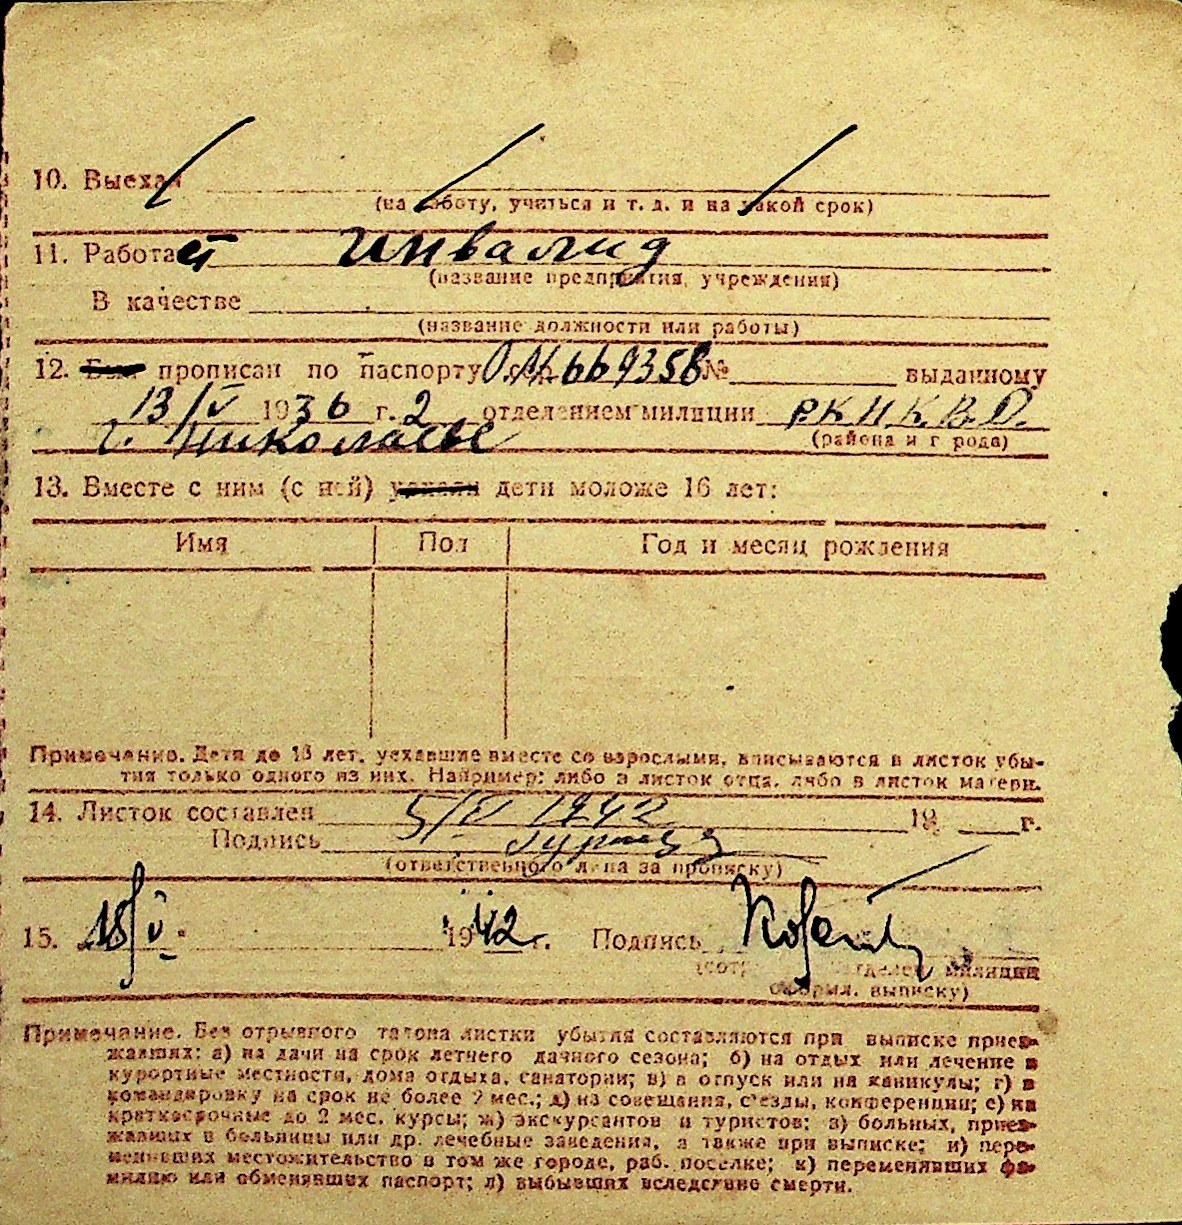 10. Выехал
(на работу, учиться и т. д. и на какой срок)
11. Работает инвалид
(название предприятия, учреждения)
В качестве
(название должности или работы)
12. Был прописан по паспорту 669358 № выданному
13/V 1936 г. 2 отделением милиции Р.К.Н.К.В.Д.
г. Николаеве (района и города)
13. Вместе с ним (с ней) уехали дети моложе 16 лет:
Имя Пол Год и месяц рождения
Примечание. Дети до 16 лет, уехавшие вместе со взрослыми, вписываются в листок убы-
тия только одного из них. Например: либо в листок отца, либо в листок матери.
14. Листок составлен 5/V 1942 19 г.
Подпись
(ответственного лица за прописку)
15. 18/V 1942 г. Подпись
(сотр отделен. милиции
оформл. выписку)
Примечание. Без отрывного талона листки убытия составляются при выписке приез-
жавших: а) на дачи на срок летнего дачного сезона; б) на отдых или лечение в
курортные местности, дома отдыха, санатории; в) в отпуск или на каникулы; г) в
командировку на срок не более 2 мес.; д) на совещания, с'езды, конференции; е) на
краткосрочные до 2 мес. курсы; ж) экскурсантов и туристов; з) больных, приез-
жавших в больницы или др. лечебные заведения, а также при выписке; и) пере-
менивших местожительство в том же городе, раб. поселке; к) переменявших фа-
милию или обменявших паспорт; л) выбывших вследствие смерти.